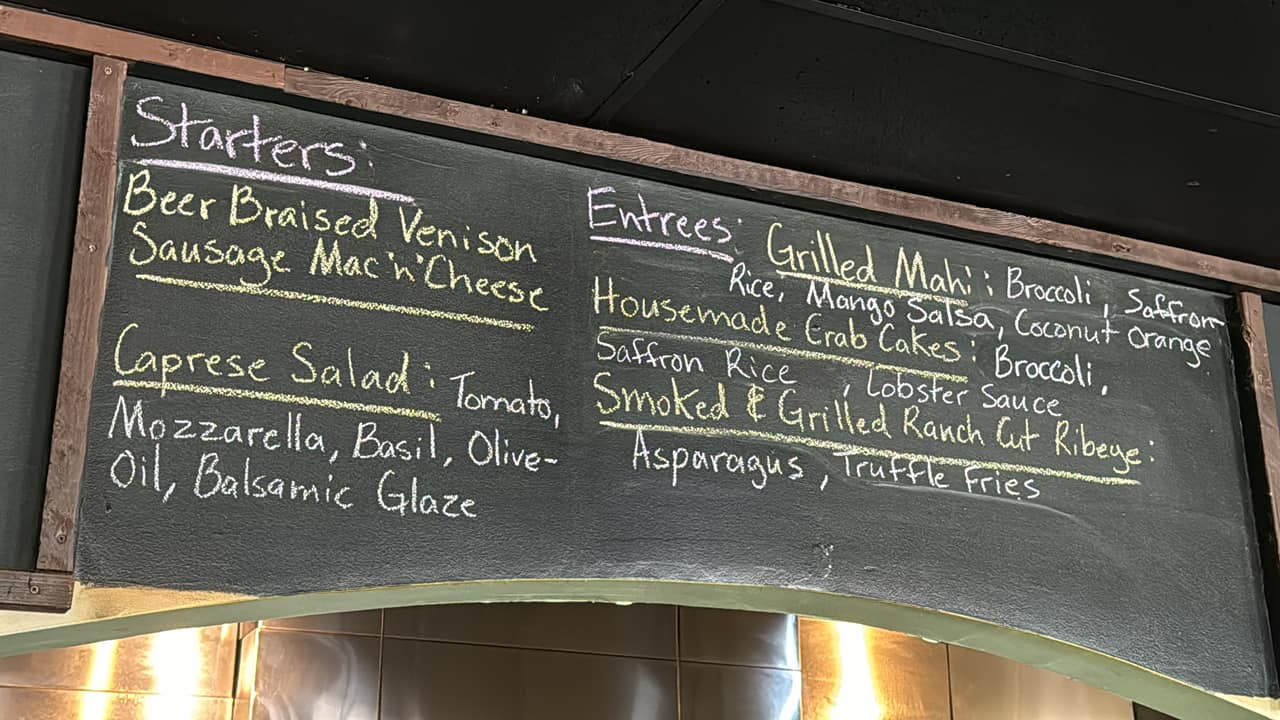 Starters:
Beer Braised Venison
Sausage Mac'n'Cheese
Caprese Salad: Tomato,
Mozzarella, Basil, Olive-
Oil, Balsamic Glaze
Entrees: Grilled Mahi: Broccoli, Saffron
Rice, Mango Salsa, Coconut Orange
Housemade Crab Cakes: Broccoli,
Saffron Rice , Lobster Sauce
Smoked & Grilled Ranch Cut Ribeye:
Asparagus, Truffle Fries